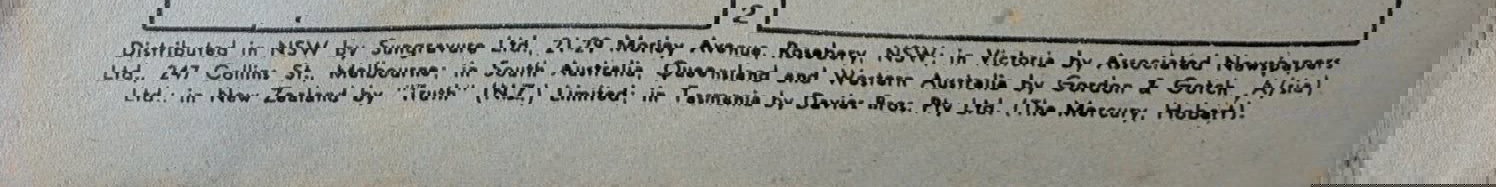 2
Distributed in NSW by Sungravure Ltd, 21-29 Morley Avenue, Rosebery, NSW; in Victoria by Associated Newspapers
Ltd, 247 Collins St, Melbourne; in South Australia, Queensland and Western Australia by Gordon & Gotch (A/sia)
Ltd; in New Zealand by "Truth" (NZ) Limited; in Tasmania by Davies Bros. Pty Ltd (The Mercury, Hobart).